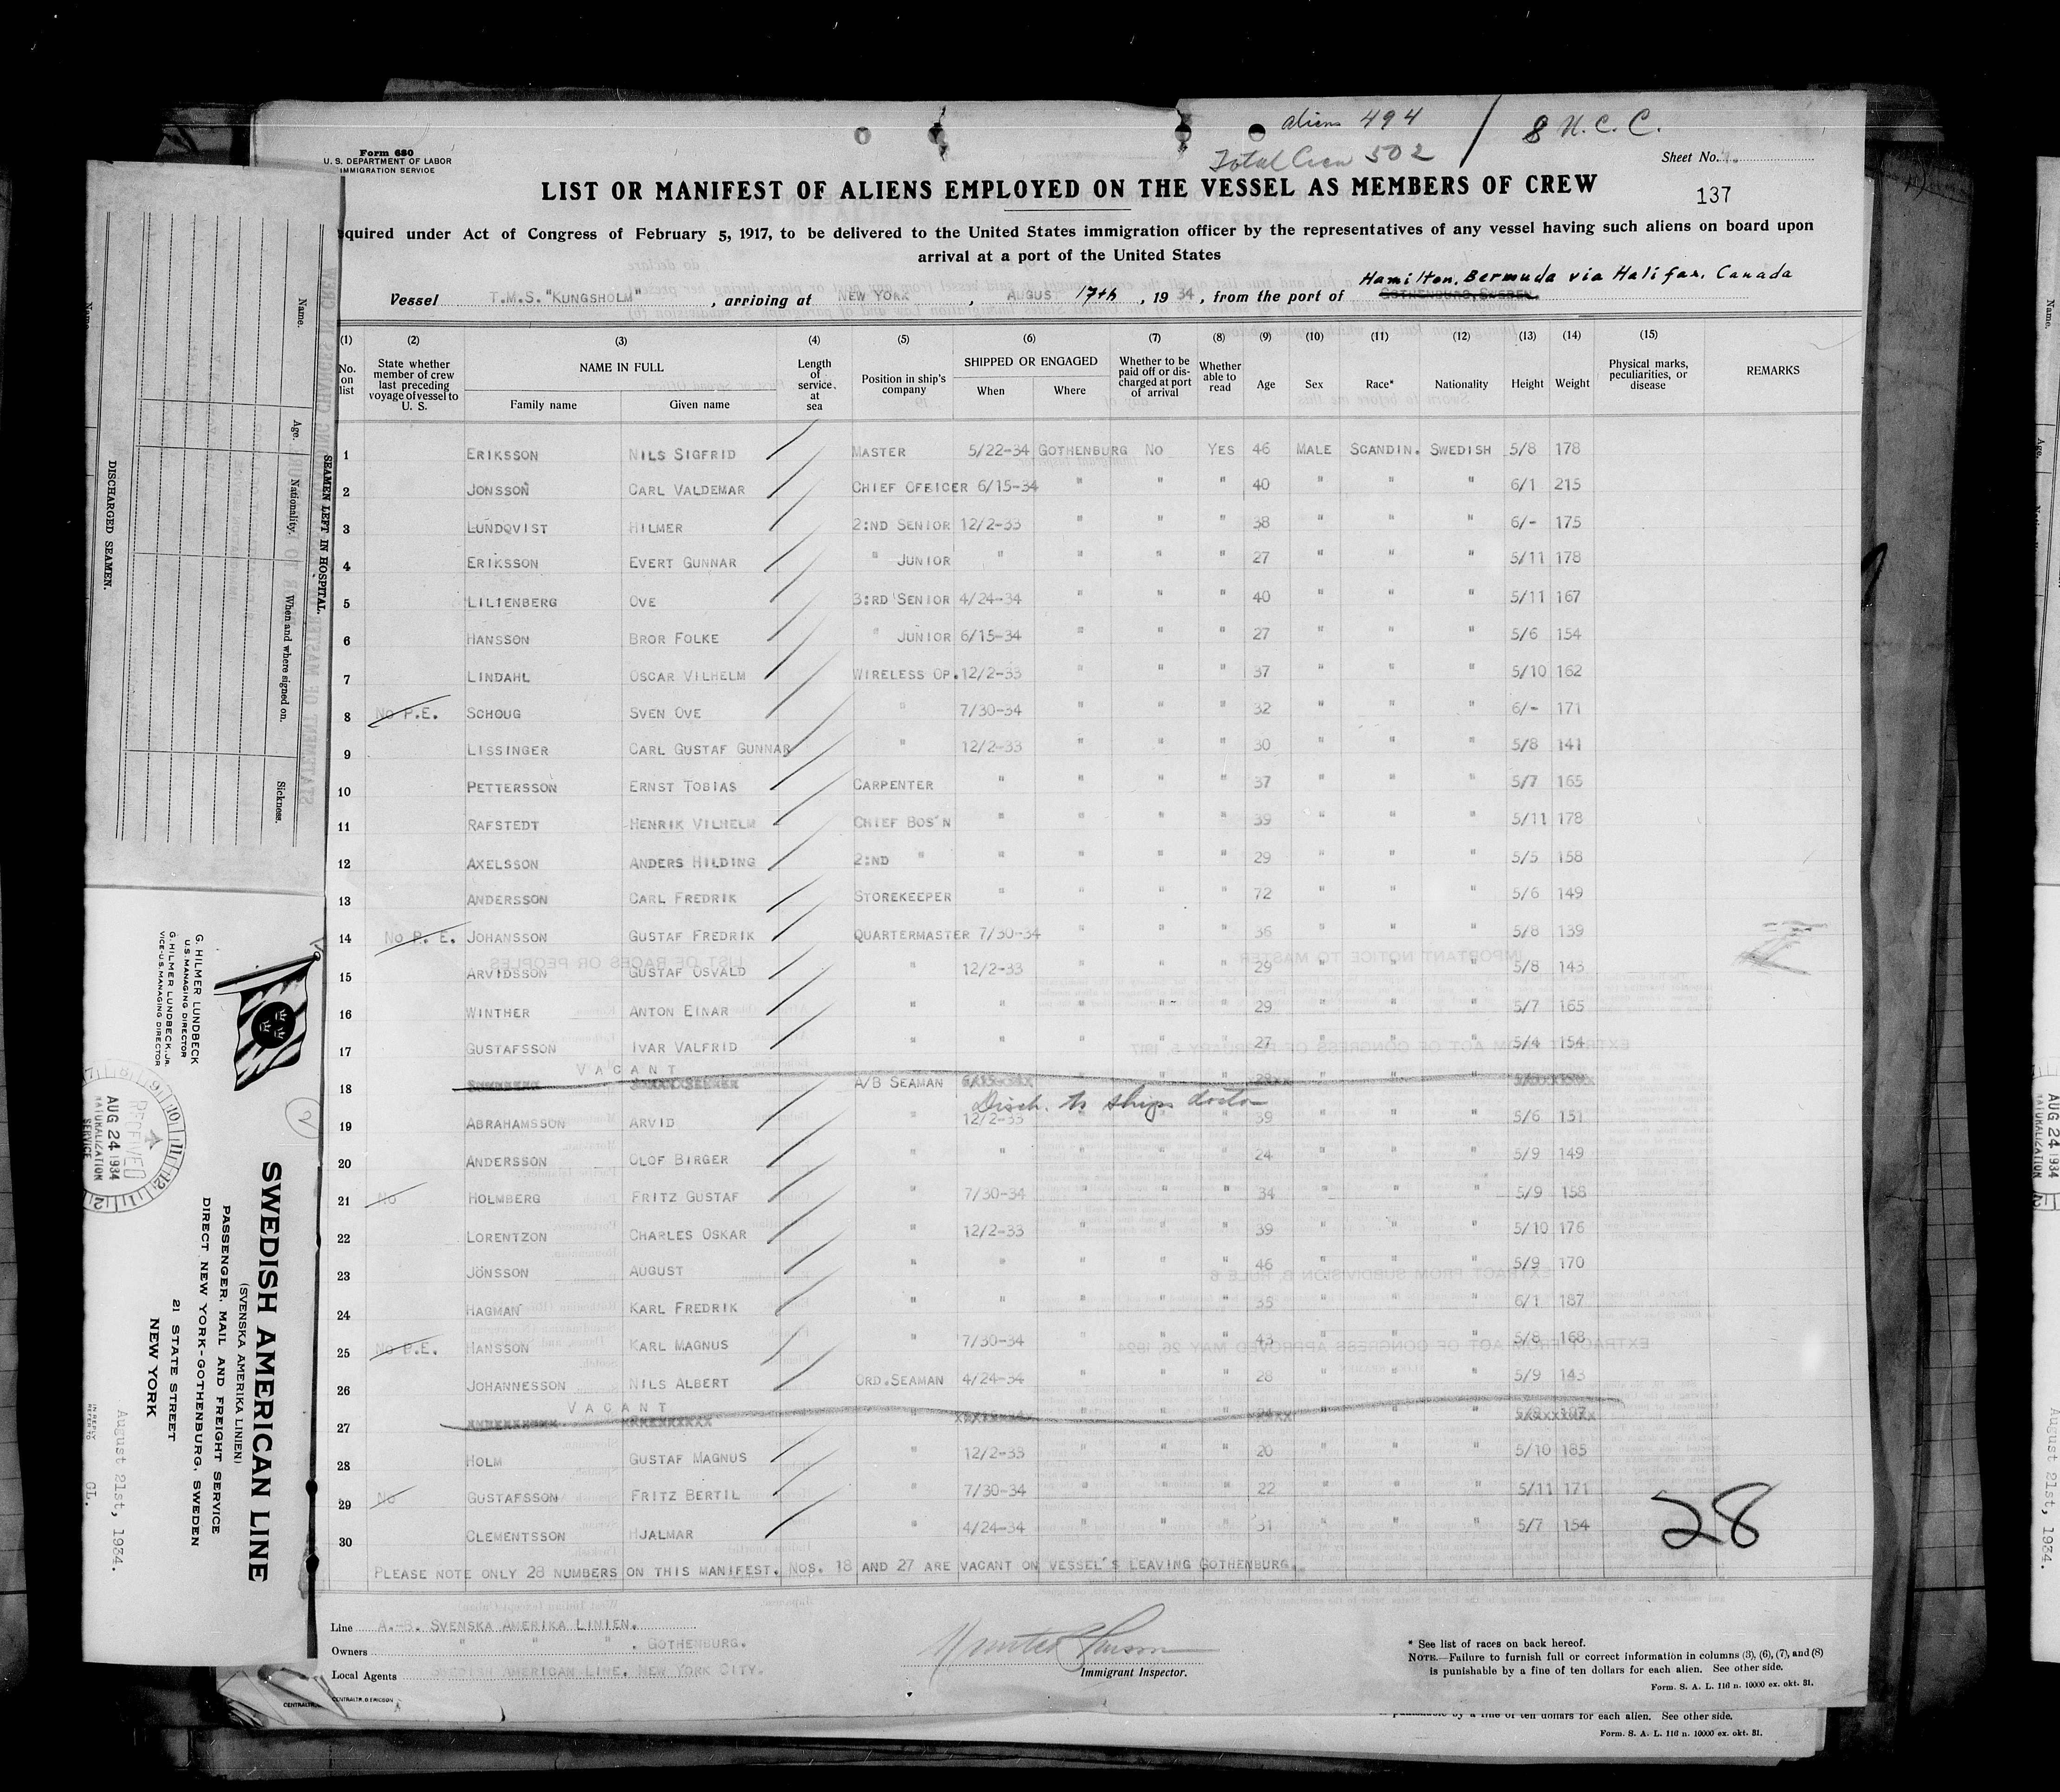 aliens 494 / 8 U.C.C.
Total Crew 502
Form 680
U. S. DEPARTMENT OF LABOR
IMMIGRATION SERVICE
Sheet No.
LIST OR MANIFEST OF ALIENS EMPLOYED ON THE VESSEL AS MEMBERS OF CREW
137
quired under Act of Congress of February 5, 1917, to be delivered to the United States immigration officer by the representatives of any vessel having such aliens on board upon
arrival at a port of the United States
Hamilton, Bermuda via Halifax, Canada
Vessel T.M.S. "KUNGSHOLM", arriving at NEW YORK, AUGUST 17th, 1934, from the port of GOTHENBURG, SWEDEN.
(1) (2) (3) (4) (5) (6) (7) (8) (9) (10) (11) (12) (13) (14) (15)
No. on list
State whether member of crew last preceding voyage of vessel to U. S.
NAME IN FULL
Family name
Given name
Length of service at sea
Position in ship's company
SHIPPED OR ENGAGED
When
Where
Whether to be paid off or discharged at port of arrival
Whether able to read
Age
Sex
Race*
Nationality
Height
Weight
Physical marks, peculiarities, or disease
REMARKS
1 ERIKSSON NILS SIGFRID MASTER 5/22-34 GOTHENBURG NO YES 46 MALE SCANDIN. SWEDISH 5/8 178
2 JONSSON CARL VALDEMAR CHIEF OFFICER 6/15-34 " " " 40 " " " 6/1 215
3 LUNDQVIST HILMER 2:ND SENIOR 12/2-33 " " " 38 " " " 6/- 175
4 ERIKSSON EVERT GUNNAR " JUNIOR " " " " 27 " " " 5/11 178
5 LILIENBERG OVE 3:RD SENIOR 4/24-34 " " " 40 " " " 5/11 167
6 HANSSON BROR FOLKE " JUNIOR 6/15-34 " " " 27 " " " 5/6 154
7 LINDAHL OSCAR VILHELM WIRELESS OP. 12/2-33 " " " 37 " " " 5/10 162
8 NO P.E. SCHOUG SVEN OVE " 7/30-34 " " " 32 " " " 6/- 171
9 LISSINGER CARL GUSTAF GUNNAR " 12/2-33 " " " 30 " " " 5/8 141
10 PETTERSSON ERNST TOBIAS CARPENTER " " " " 37 " " " 5/7 165
11 RAFSTEDT HENRIK VILHELM CHIEF BOS'N " " " " 39 " " " 5/11 178
12 AXELSSON ANDERS HILDING 2:ND " " " " " 29 " " " 5/5 158
13 ANDERSSON CARL FREDRIK STOREKEEPER " " " " 72 " " " 5/6 149
14 NO P. E. JOHANSSON GUSTAF FREDRIK QUARTERMASTER 7/30-34 " " " 36 " " " 5/8 139
15 ARVIDSSON GUSTAF OSVALD " 12/2-33 " " " 29 " " " 5/8 143
16 WINTHER ANTON EINAR " " " " " 29 " " " 5/7 165
17 GUSTAFSSON IVAR VALFRID " " " " " 27 " " " 5/4 154
VACANT
18 A/B SEAMAN
Disch. to ships doctor
19 ABRAHAMSSON ARVID " 12/2-33 " " " 39 " " " 5/6 151
20 ANDERSSON OLOF BIRGER " " " " " 24 " " " 5/9 149
21 NO HOLMBERG FRITZ GUSTAF " 7/30-34 " " " 34 " " " 5/9 158
22 LORENTZON CHARLES OSKAR " 12/2-33 " " " 39 " " " 5/10 176
23 JÖNSSON AUGUST " " " " " 46 " " " 5/9 170
24 HAGMAN KARL FREDRIK " " " " " 35 " " " 6/1 187
25 NO P.E. HANSSON KARL MAGNUS " 7/30-34 " " " 43 " " " 5/8 168
26 JOHANNESSON NILS ALBERT ORD.SEAMAN 4/24-34 " " " 28 " " " 5/9 143
VACANT
27 "
28 HOLM GUSTAF MAGNUS " 12/2-33 " " " 20 " " " 5/10 185
29 NO GUSTAFSSON FRITZ BERTIL " 7/30-34 " " " 22 " " " 5/11 171
30 CLEMENTSSON HJALMAR " 4/24-34 " " " 31 " " " 5/7 154
28
PLEASE NOTE ONLY 28 NUMBERS ON THIS MANIFEST. NOS. 18 AND 27 ARE VACANT ON VESSEL'S LEAVING GOTHENBURG.
Line A.-B. SVENSKA AMERIKA LINIEN.
Owners " " " . GOTHENBURG.
Local Agents SWEDISH AMERICAN LINE, NEW YORK CITY.
Immigrant Inspector.
* See list of races on back hereof.
NOTE.—Failure to furnish full or correct information in columns (3), (6), (7), and (8)
is punishable by a fine of ten dollars for each alien. See other side.
Form. S. A. L. 116 n. 10000 ex. okt. 31.
CENTRALTR. G. ERICSON
is punishable by a fine of ten dollars for each alien. See other side.
Form. S. A. L. 116 n. 10000 ex. okt. 31.
SEAMEN LEFT IN HOSPITAL.
Name. Age. Nationality. When and where signed on. Sickness.
DISCHARGED SEAMEN.
G. HILMER LUNDBECK
U.S. MANAGING DIRECTOR
G. HILMER LUNDBECK, JR.
VICE-U.S. MANAGING DIRECTOR
RECEIVED
AUG 24 1934
NATURALIZATION
SERVICE
2
SWEDISH AMERICAN LINE
(SVENSKA AMERIKA LINIEN)
PASSENGER, MAIL AND FREIGHT SERVICE
DIRECT NEW YORK-GOTHENBURG, SWEDEN
21 STATE STREET
NEW YORK
IN REPLY
REFER TO
GL.
August 21st, 1934.
Name.
Age.
AUG 24 1934
NATURALIZATION
August 21st, 1934.